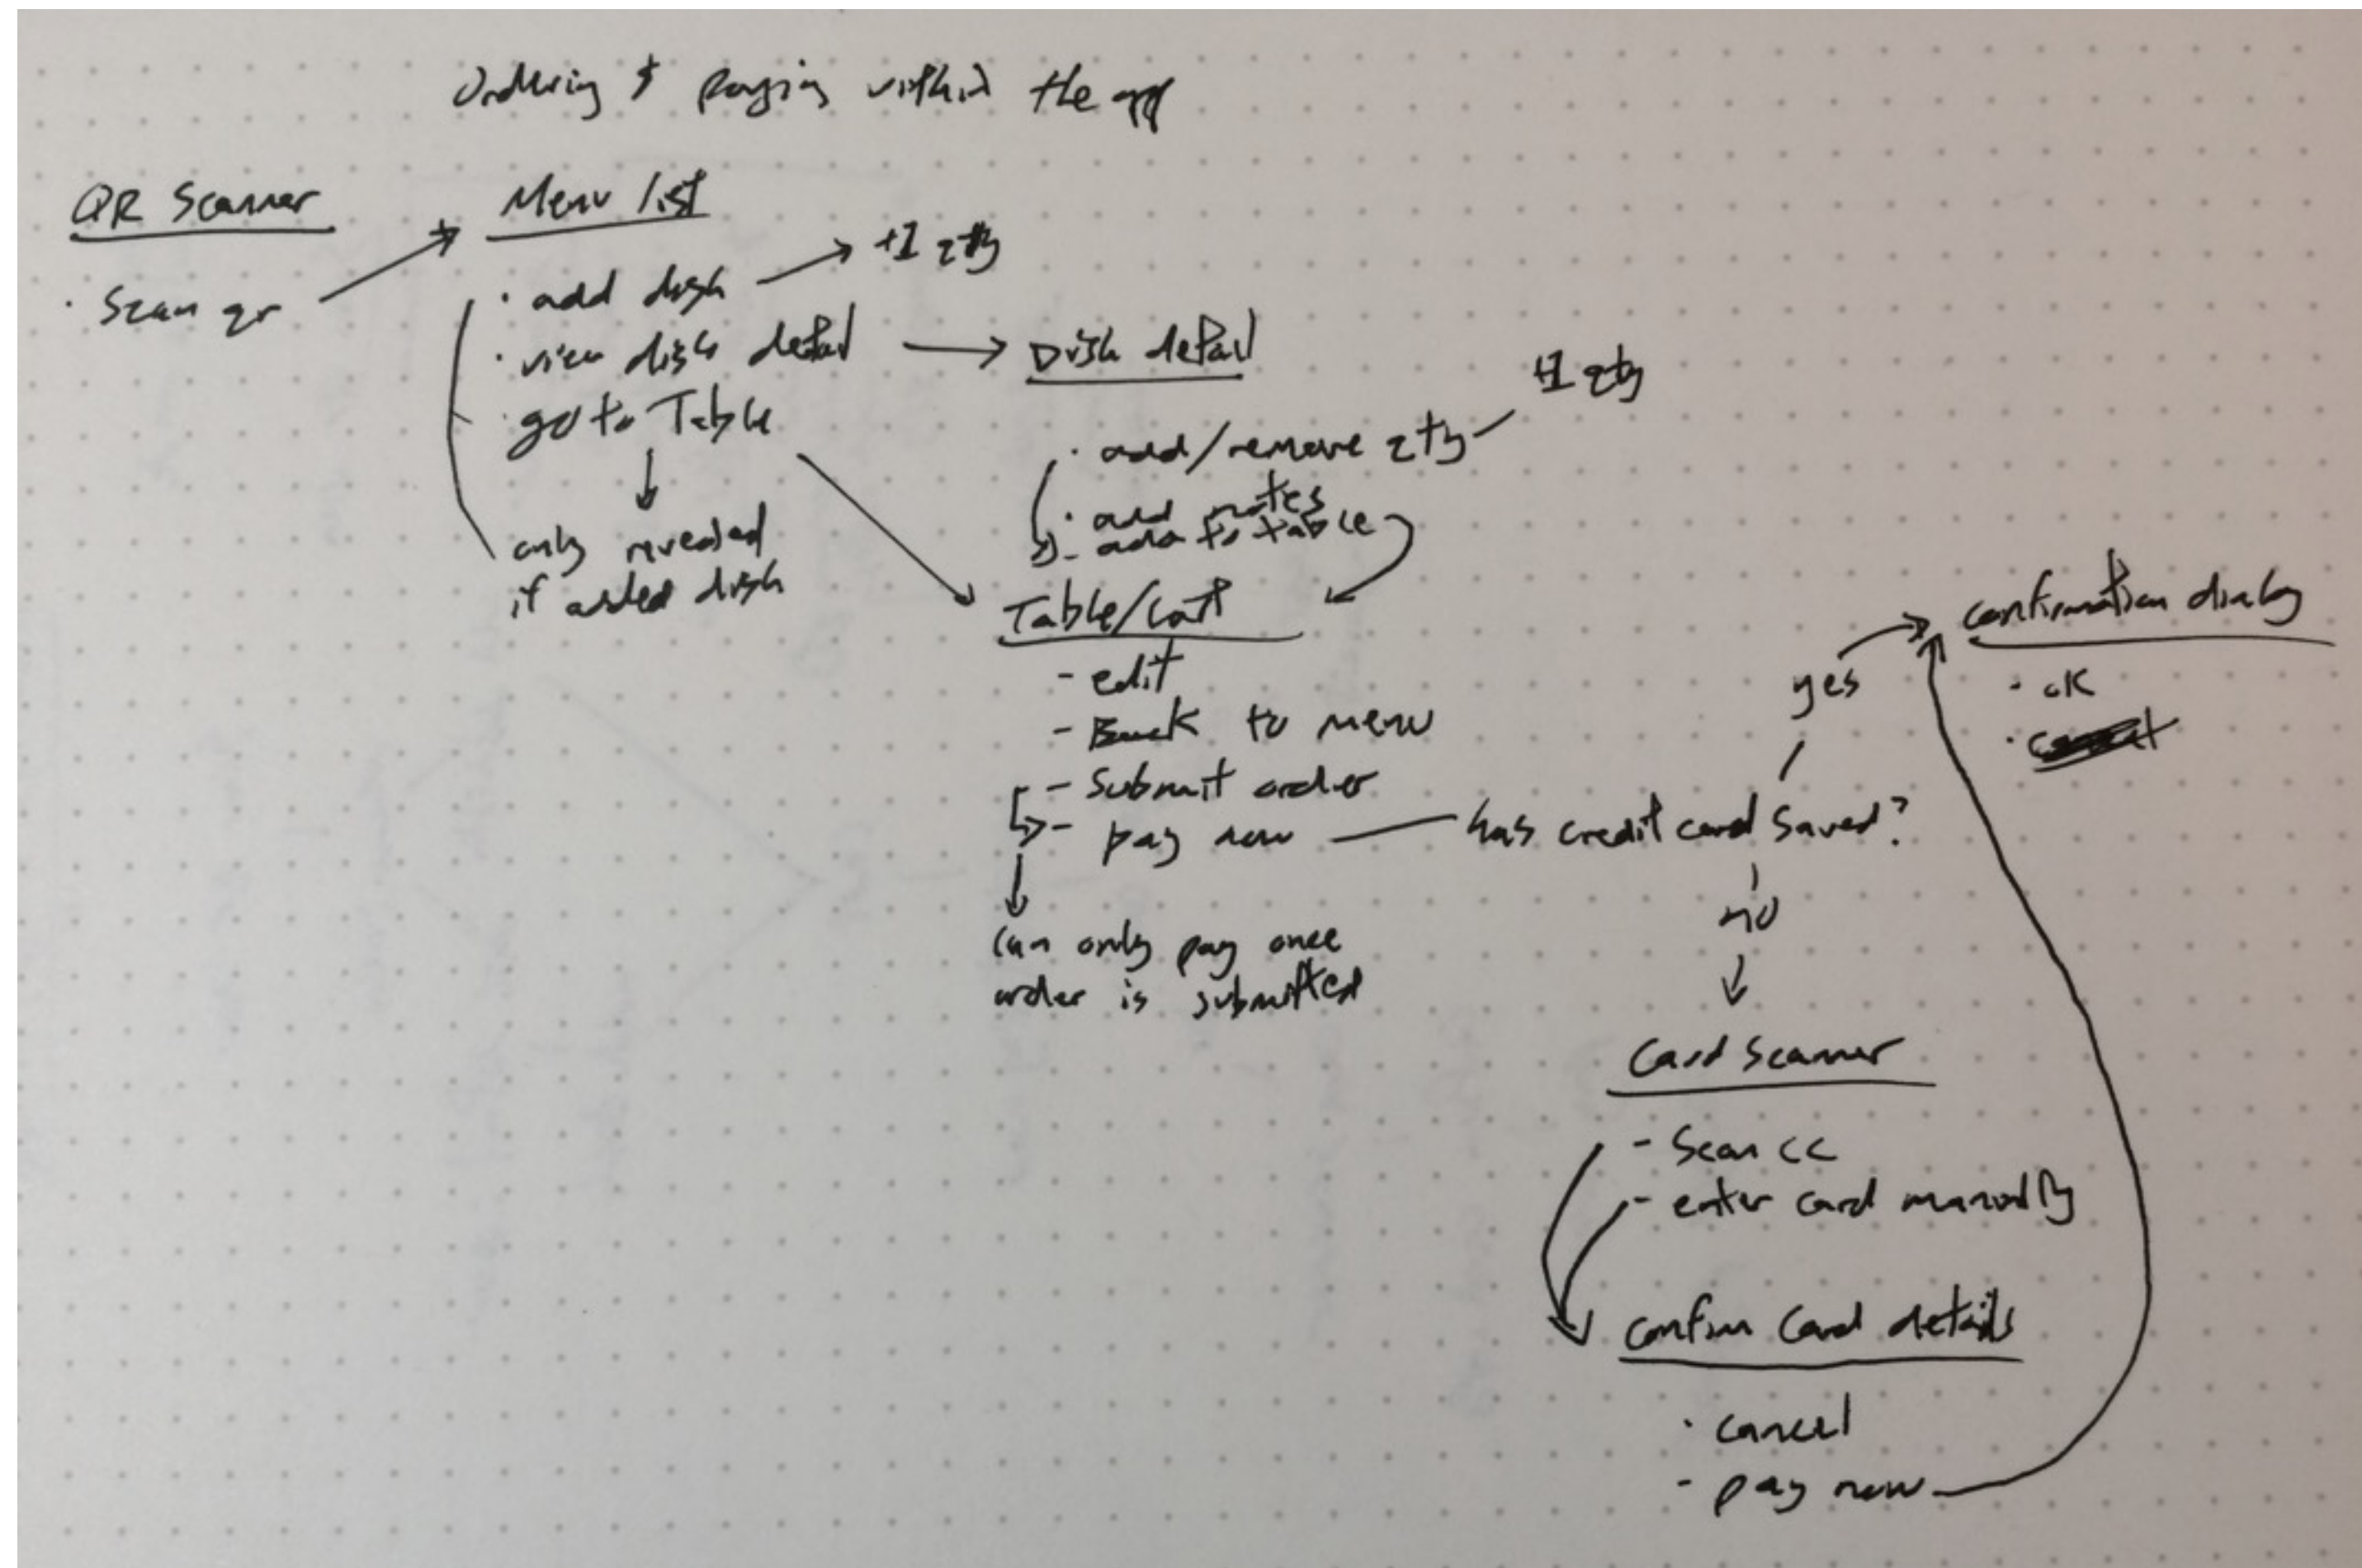 Ordering & paying within the app
QR Scanner
· Scan qr
Menu list
· add dish
+1 qty
· view dish detail
· go to Table
only revealed
if added dish
Dish detail
· add/remove qty
+1 qty
· add notes
- add to table
Table/Cart
- edit
- Back to menu
- Submit order
- pay now
can only pay once
order is submitted
has credit card saved?
yes
no
confirmation dialog
· ok
Card Scanner
- Scan cc
- enter card manually
Confirm Card details
· cancel
- pay now